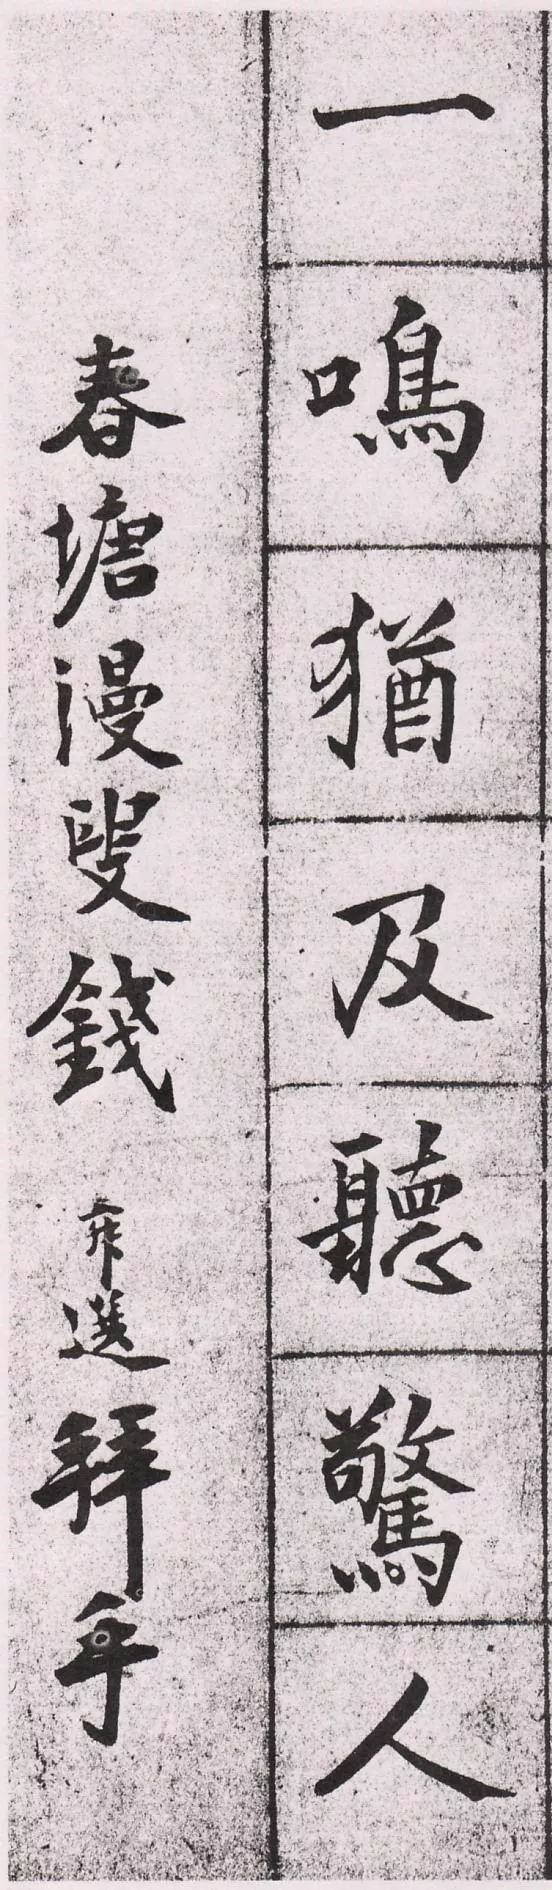 一鳴猶及聽驚人
春塘漫叟錢舜選拜手